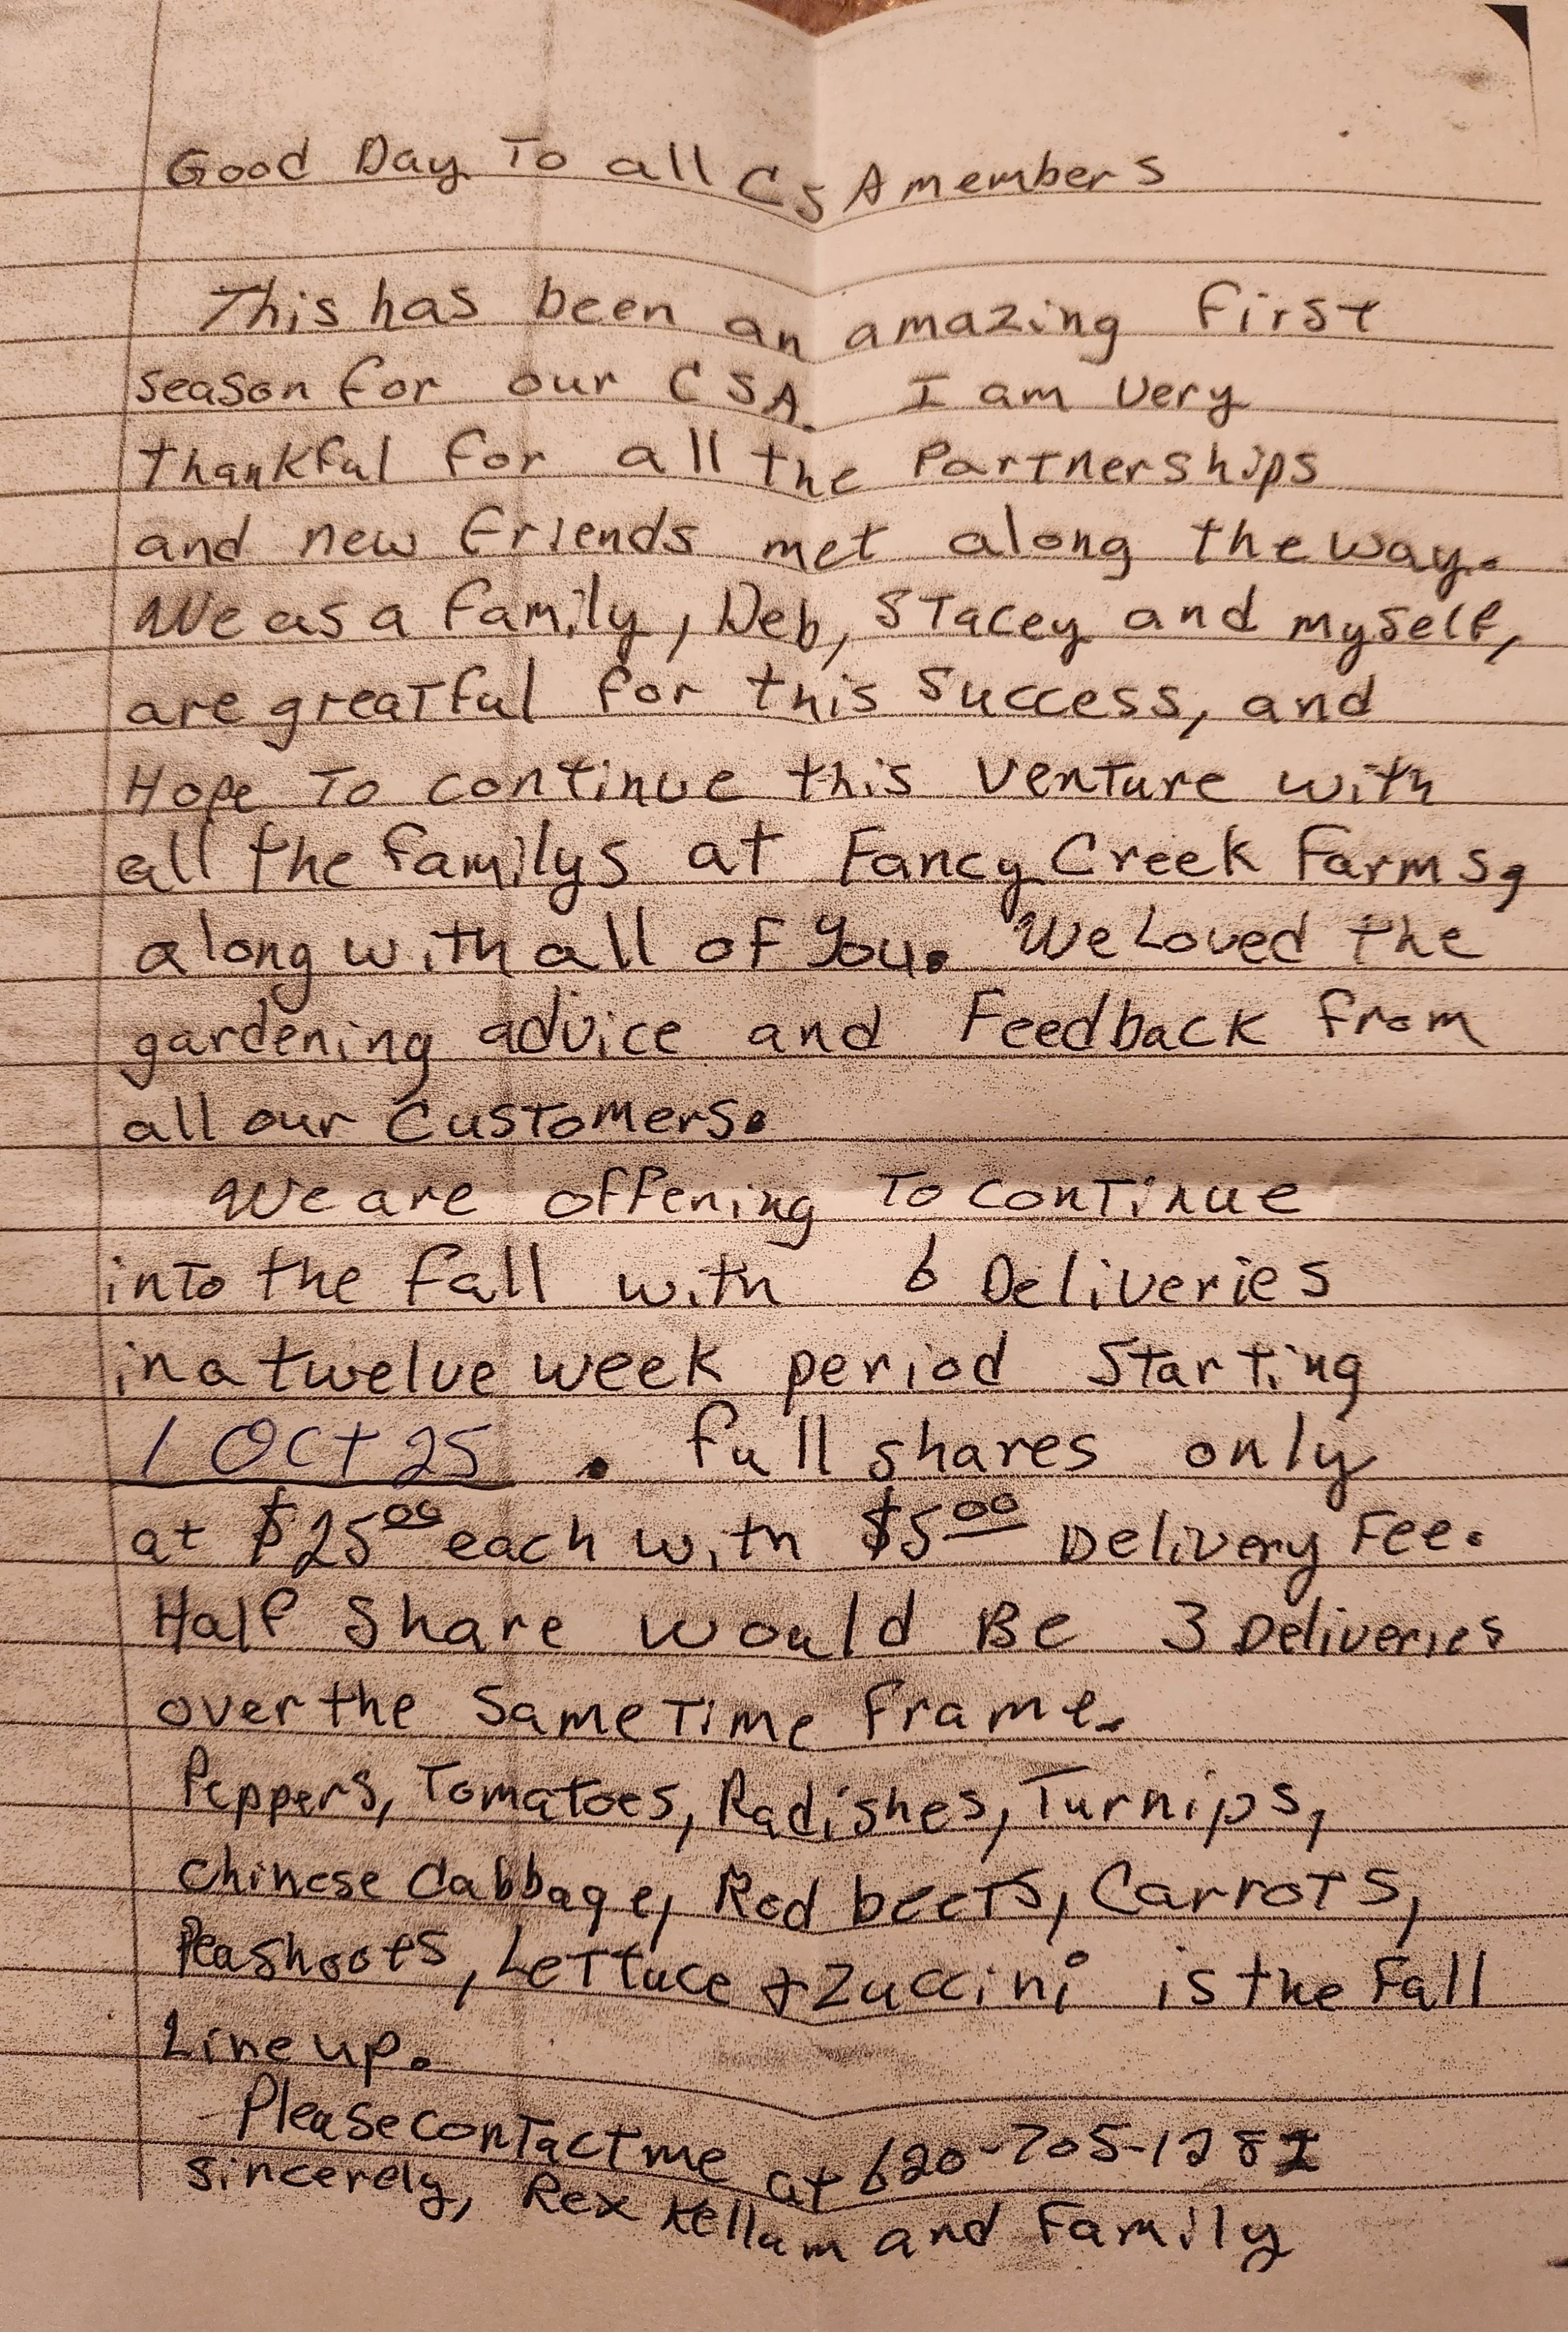 Good Day To all CSA members
This has been an amazing first
season for our CSA. I am very
thankful for all the Partnerships
and new friends met along the way.
We as a family, Deb, Stacey and myself,
are greatful for this success, and
Hope To continue this venture with
all the familys at Fancy Creek Farms,
along with all of you. We Loved the
gardening advice and Feedback from
all our Customers.
We are offering To continue
into the fall with 6 Deliveries
in a twelve week period Starting
1 Oct 25 . full shares only
at $25.00 each with $5.00 Delivery Fee.
Half Share would Be 3 Deliveries
over the same Time Frame.
Peppers, Tomatoes, Radishes, Turnips,
Chinese Cabbage, Red beets, Carrots,
Peashoots, Lettuce & Zuccini is the Fall
Line up.
Please contact me at 620-705-1281
sincerely, Rex Kellam and Family